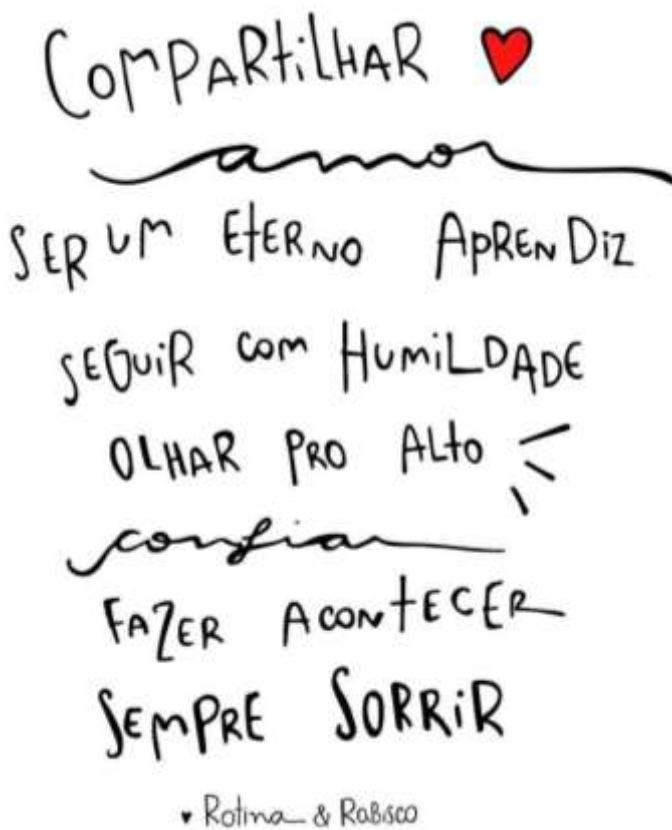 COMPARTILHAR
amor
SER UM ETERNO APRENDIZ
SEGUIR COM HUMILDADE
OLHAR PRO ALTO
confiar
FAZER ACONTECER
SEMPRE SORRIR
Rotina & RABISCO